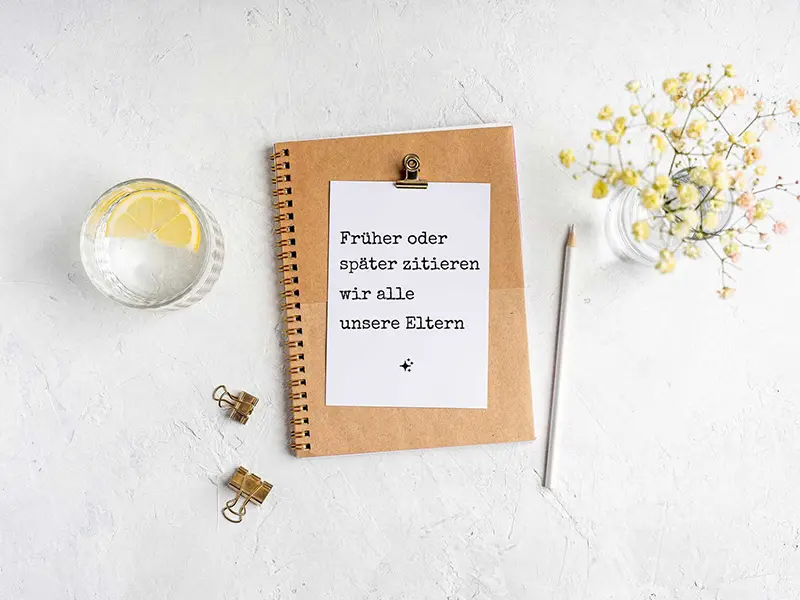 Früher oder
später zitieren
wir alle
unsere Eltern